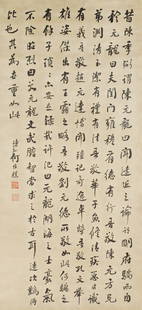 昔陳季弼謂陳元龍曰聞遠近之論謂明府驕而自
矜元龍曰夫閨門雍穆有德有行吾敬陳元方兄
弟淵清玉潔有禮有法吾敬華子魚清修疾惡有識
有義吾敬趙元達博聞強記奇逸卓犖吾敬孔文舉
雄姿傑出有王霸之略吾敬劉元德所敬如此何驕之
有餘子瑣瑣亦安足錄哉許汜曰陳元龍湖海之士豪氣
不除曰若元龍文武膽智當求之於古耳造次難得
比也其為名重如此